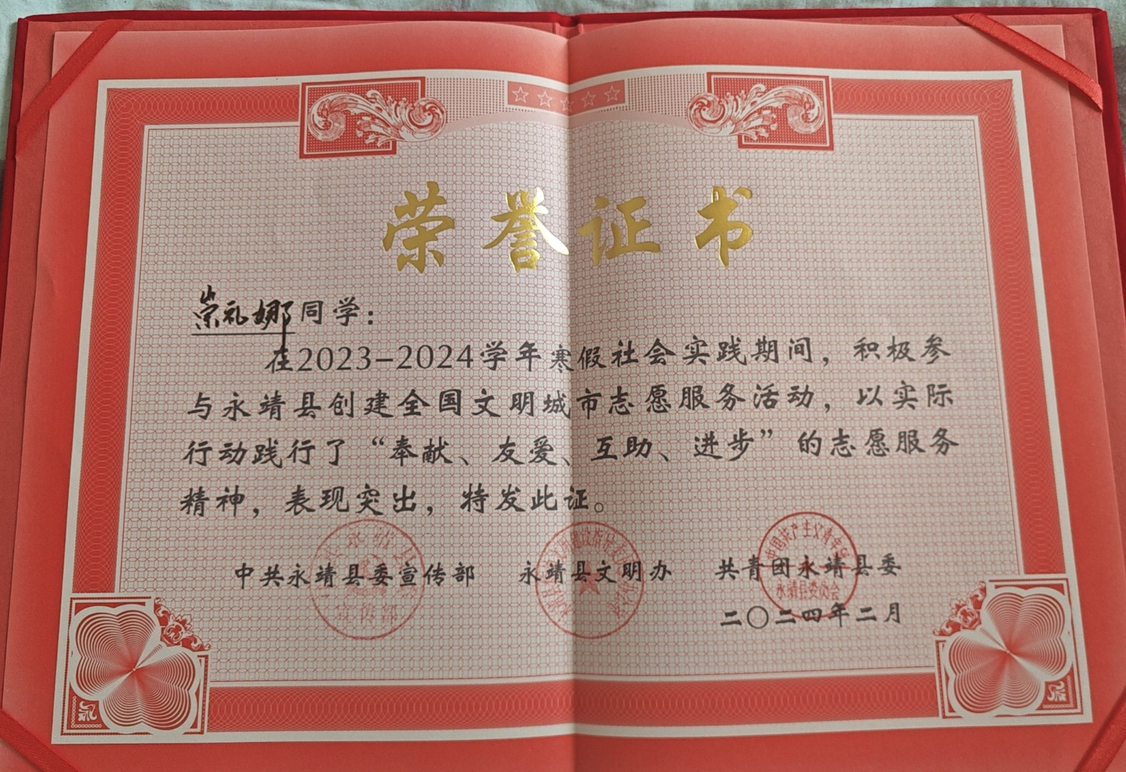 荣誉证书
崇礼娜同学：
在2023-2024学年寒假社会实践期间，积极参
与永靖县创建全国文明城市志愿服务活动，以实际
行动践行了“奉献、友爱、互助、进步”的志愿服务
精神，表现突出，特发此证。
中共永靖县委宣传部 永靖县文明办 共青团永靖县委
二〇二四年二月
宣传部
中国共产主义青年团
永靖县委员会